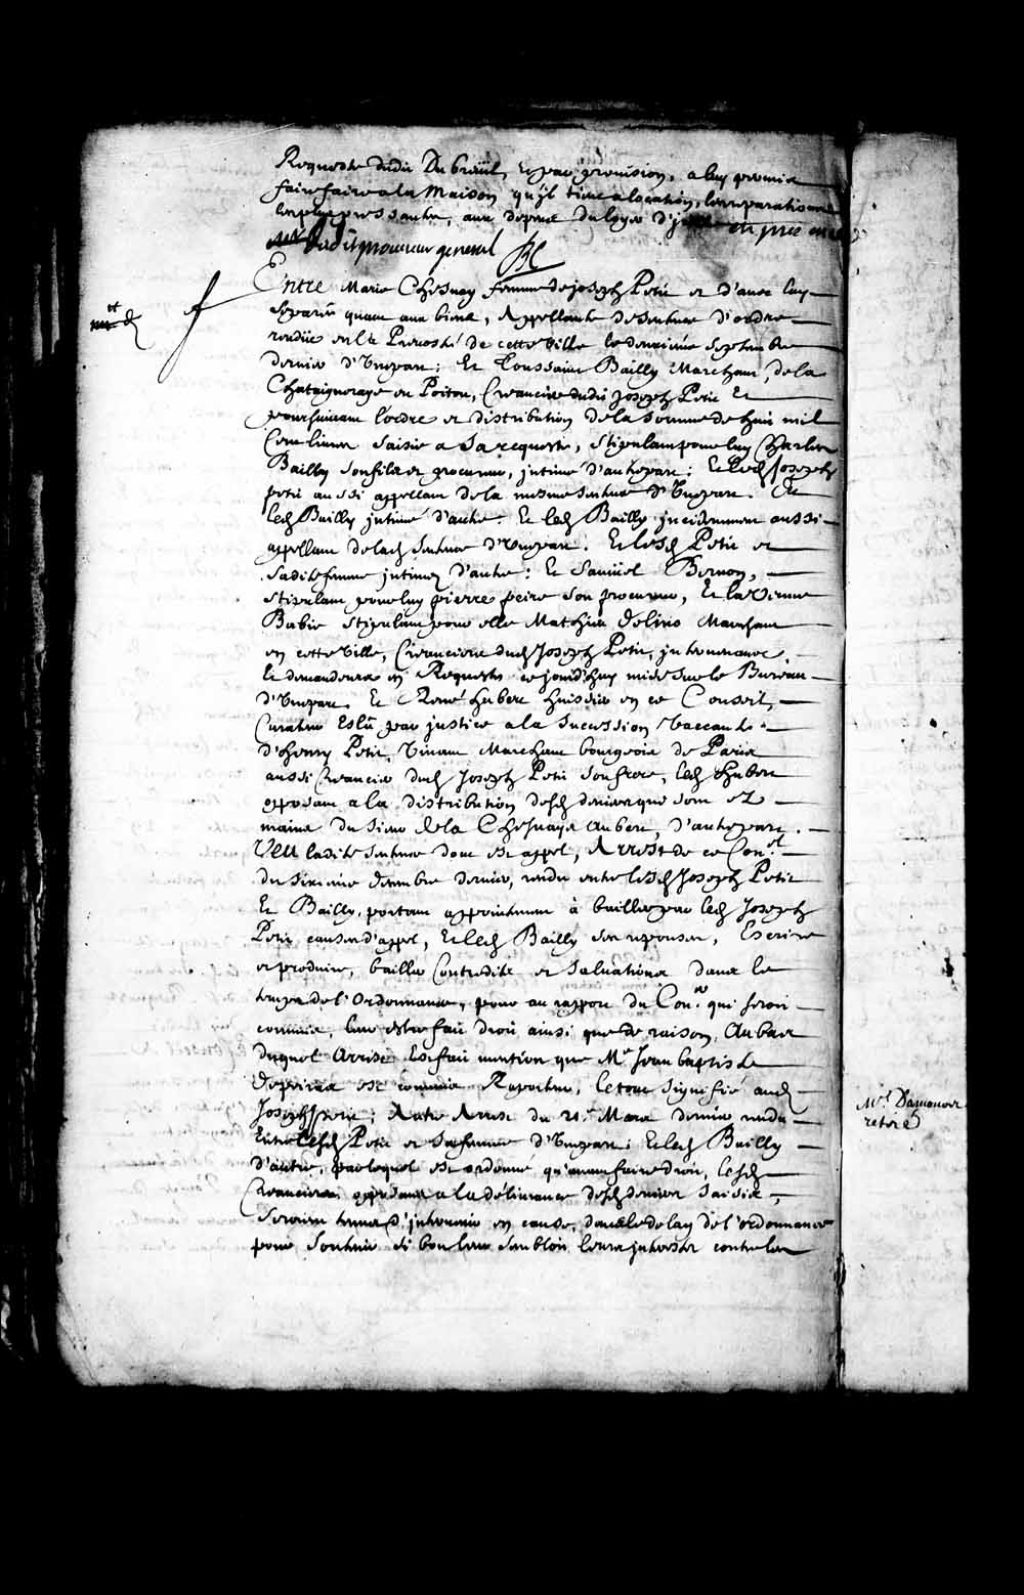 Requeste dudit Du breüil, et par provision, a luy permis
faire faire a la Maison qu'jl tient a location, les reparations
les plus pressantes, aux depens du loyer d'jcelle en pnce
dudit procureur general
Entre Marie Chesnay femme de joseph Petit et d'avec luy
separée quant aux biens, Appellante de sentence d'ordre
rendüe en la Prevosté de cette Ville le deuxieme septembre
dernier d'Vnepart; Et Toussaint Bailly Marchant, de la
Chataigneraye en Poitou, Creancier dudit joseph Petit Et
poursuivant l'ordre et distribution de la somme de huit mil
Cent livres saisie a sa requeste, stipulant pour luy Charles
Bailly son fils et procureur, jntimé d'autrepart; Et led Joseph
petit aussi appellant de la mesme sentence d'Vnepart. Et
led Bailly jntimé d'autre. Et led Bailly jncidemment aussi
appellant de lad sentence d'Vnepart. Et lesd Petit et
sadite femme jntimez d'autre; Et Samüel Bernon,
stipulant pour luy pierre peire son procureur, Et la Veuve
Babie stipulant pour elle Mathieu Delino Marchant
en cette Ville, Creanciers dud Joseph Petit, jntervenans
et demandeurs en Requeste ce jourd'huy mise sur le Bureau
d'Vnepart. Et René hubert huissier en ce Conseil,
Curateur Eslû par justice a la Succession Vaccante
d'henry Petit, Vivant Marchant bourgeois de Paris
aussi Creancier dud Joseph Petit son frere, led hubert
opposant a la distribution desd deniers que sont ez
mains du sieur dela Chesnaye Aubert, d'autrepart.
Veu ladite sentence dont est appel, Arrest de ce Conel
du sixieme decembre dernier, rendu entre lesd Joseph Petit
Et Bailly, portant appointement à bailler par led Joseph
Petit causes d'appel, Et led Bailly ses reponses, Escrire
et produire, bailler Contredits et salvations dans le
temps de l'Ordonnance, pour au rapport du Coner qui seroit
commis, leur estre fait droit ainsi que de raison, Au bas
duquel Arrest Est fait mention que Me Jean baptiste
Depeiras est commis Raporteur, le tout signifié aud
Joseph Petit; Autre Arrest du 21e Mars dernier rendu
Entre lesd Petit et sa femme d'Vnepart; Et led Bailly
d'autre, par lequel est ordonné qu'avant faire droit, lesd
Creanciers opposans a la délivrance desd deniers saisis,
seroient tenus d'jntervenir en cause, dans le delay de l'ordonnance
pour soutenir si bon leur sembloit leurs jnterests contre les
Mrs Damours
retiré